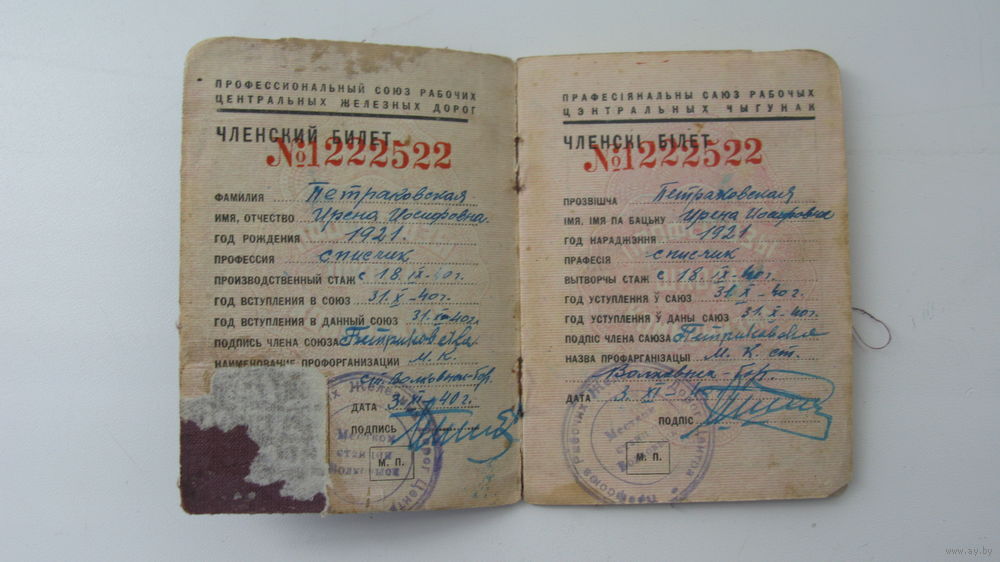 ПРОФЕССИОНАЛЬНЫЙ СОЮЗ РАБОЧИХ
ЦЕНТРАЛЬНЫХ ЖЕЛЕЗНЫХ ДОРОГ
ЧЛЕНСКИЙ БИЛЕТ
№1222522
ФАМИЛИЯ Петраковская
ИМЯ, ОТЧЕСТВО Ирена Иосифовна
ГОД РОЖДЕНИЯ 1921.
ПРОФЕССИЯ списчик
ПРОИЗВОДСТВЕННЫЙ СТАЖ с 18.IX-40г.
ГОД ВСТУПЛЕНИЯ В СОЮЗ 31.X-40г.
ГОД ВСТУПЛЕНИЯ В ДАННЫЙ СОЮЗ 31.X-40г.
ПОДПИСЬ ЧЛЕНА СОЮЗА
НАИМЕНОВАНИЕ ПРОФОРГАНИЗАЦИИ М.К.
ст. Волковыск-Гор.
ДАТА 3.XI-40г.
ПОДПИСЬ
М. П.
Местком
станции
ПРАФЕСІЯНАЛЬНЫ САЮЗ РАБОЧЫХ
ЦЭНТРАЛЬНЫХ ЧЫГУНАК
ЧЛЕНСКІ БІЛЕТ
№1222522
ПРОЗВІШЧА Петраковская
ІМЯ, ІМЯ ПА БАЦЬКУ Ирена Иосифовна
ГОД НАРАДЖЭННЯ 1921
ПРАФЕСІЯ списчик
ВЫТВОРЧЫ СТАЖ с 18.IX-40г.
ГОД УСТУПЛЕННЯ Ў САЮЗ 31.X-40г.
ГОД УСТУПЛЕННЯ Ў ДАНЫ САЮЗ 31.X-40г.
ПОДПІС ЧЛЕНА САЮЗА
НАЗВА ПРАФАРГАНІЗАЦЫІ М.К. ст.
Волковыск-Гор.
ДАТА 3.XI-40
ПОДПІС
М. П.
www.ay.by